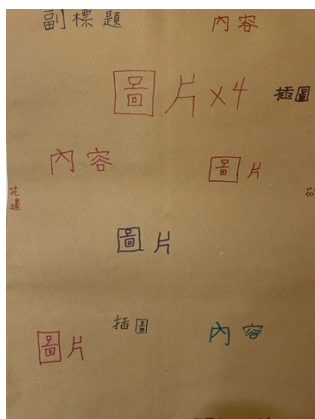 副標題
內容
圖片x4
插圖
內容
圖片
花邊
圖片
插圖
內容
圖片